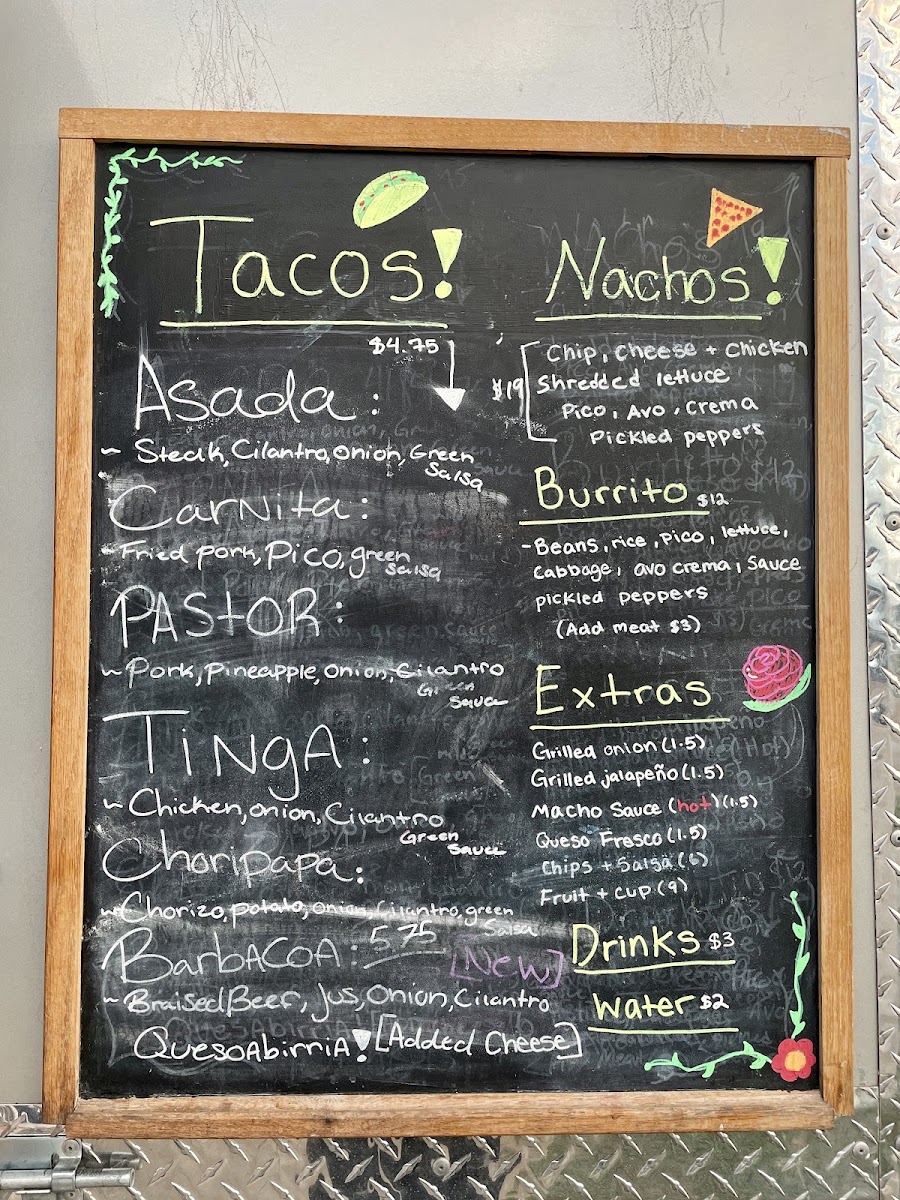 Tacos!
$4.75
Asada:
~ Steak, Cilantro, onion, Green
Salsa
Carnita:
~ Fried pork, Pico, green
salsa
PAStOR:
~ Pork, Pineapple, onion, Cilantro
Green
sauce
TiNgA:
~ Chicken, onion, Cilantro
Green
sauce
Choripapa:
~ Chorizo, potato, onion, Cilantro, green
Salsa
BarbACOA: 5.75
[New]
~ Braised Beer, Jus, onion, Cilantro
QuesoAbirriA! [Added Cheese]
Nachos!
Chip, cheese + chicken
$19 Shredded lettuce
Pico, Avo, crema
Pickled peppers
Burrito $12
- Beans, rice, pico, lettuce,
Cabbage, avo crema, sauce
pickled peppers
(Add meat $3)
Extras
Grilled onion (1.5)
Grilled jalapeño (1.5)
Macho Sauce (hot) (1.5)
Queso Fresco (1.5)
Chips + Salsa (6)
Fruit + cup (9)
Drinks $3
Water $2